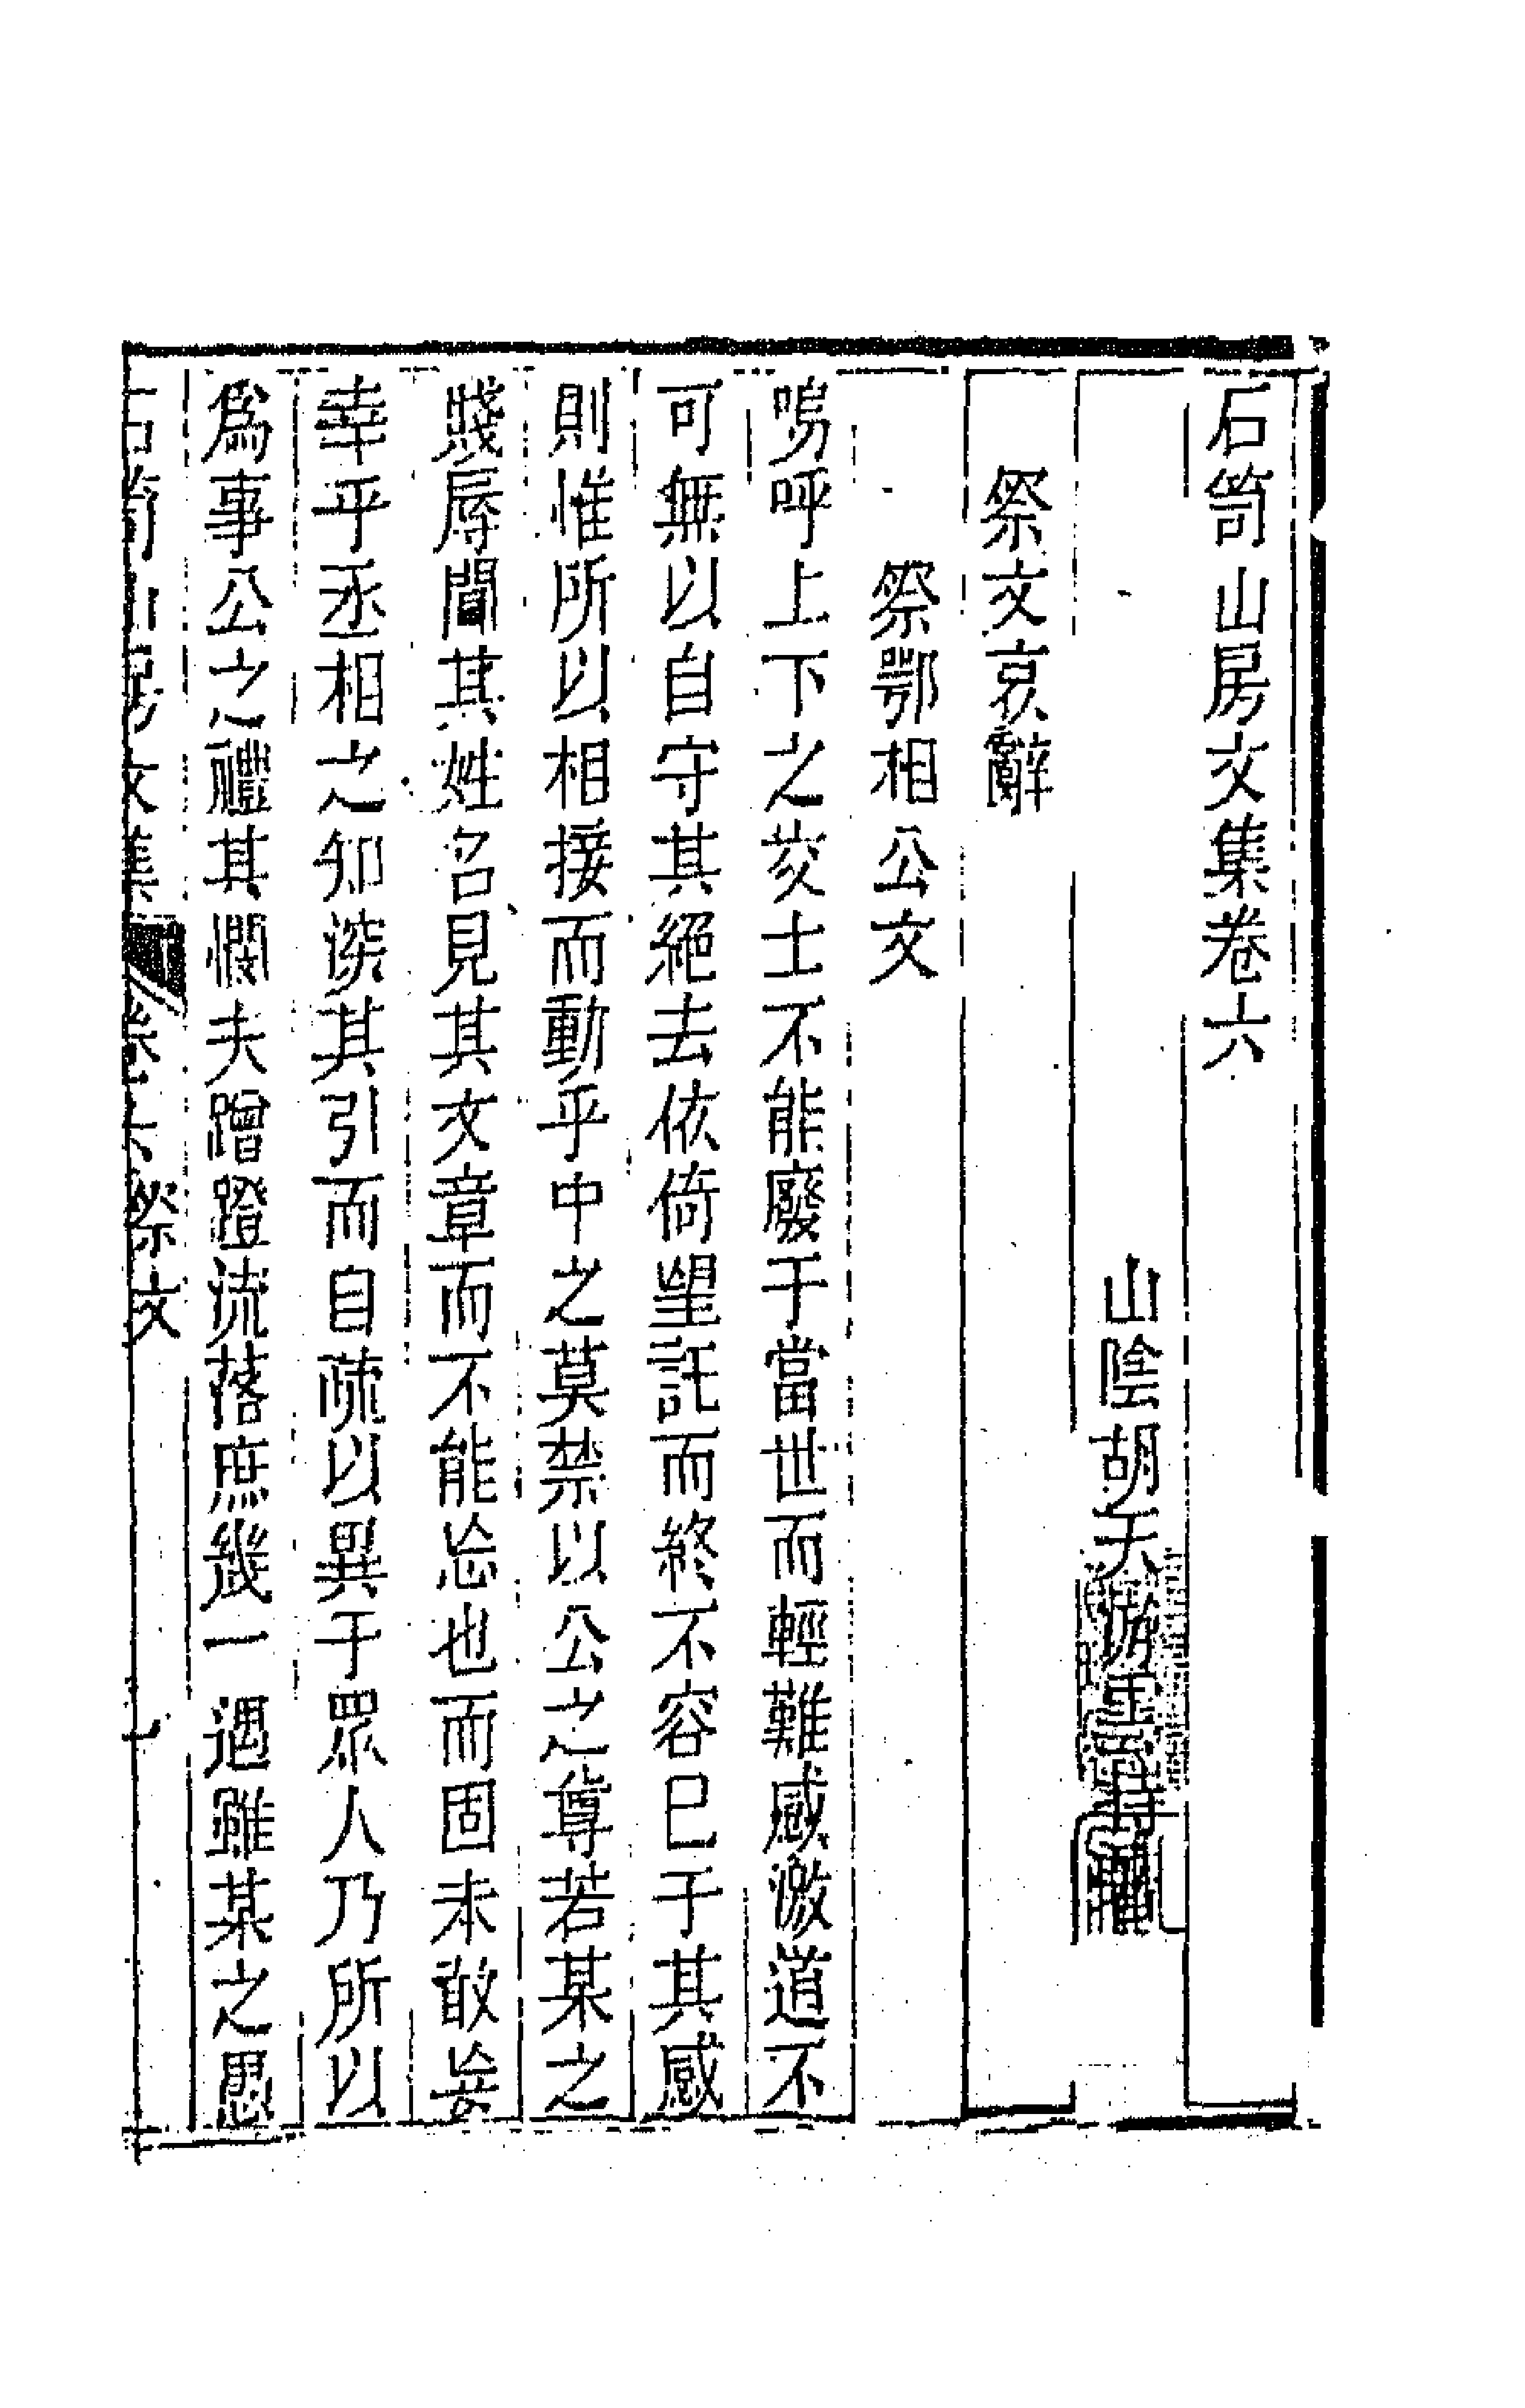 石笥山房文集卷六
山陰胡天游
祭文哀辭
祭鄂相公文
嗚呼上下之交士不能廢于當世而輕難感激道不
可無以自守其絕去依倚望託而終不容已于其感
則惟所以相接而動乎中之莫禁以公之尊若某之
賤辱聞其姓名見其文章而不能忘也而固未敢妄
幸乎丞相之知深其引而自疏以異于眾人乃所以
爲事公之禮其憫夫蹭蹬流落庶幾一遇雖某之愚
石笥山房文集 卷六 祭文 一